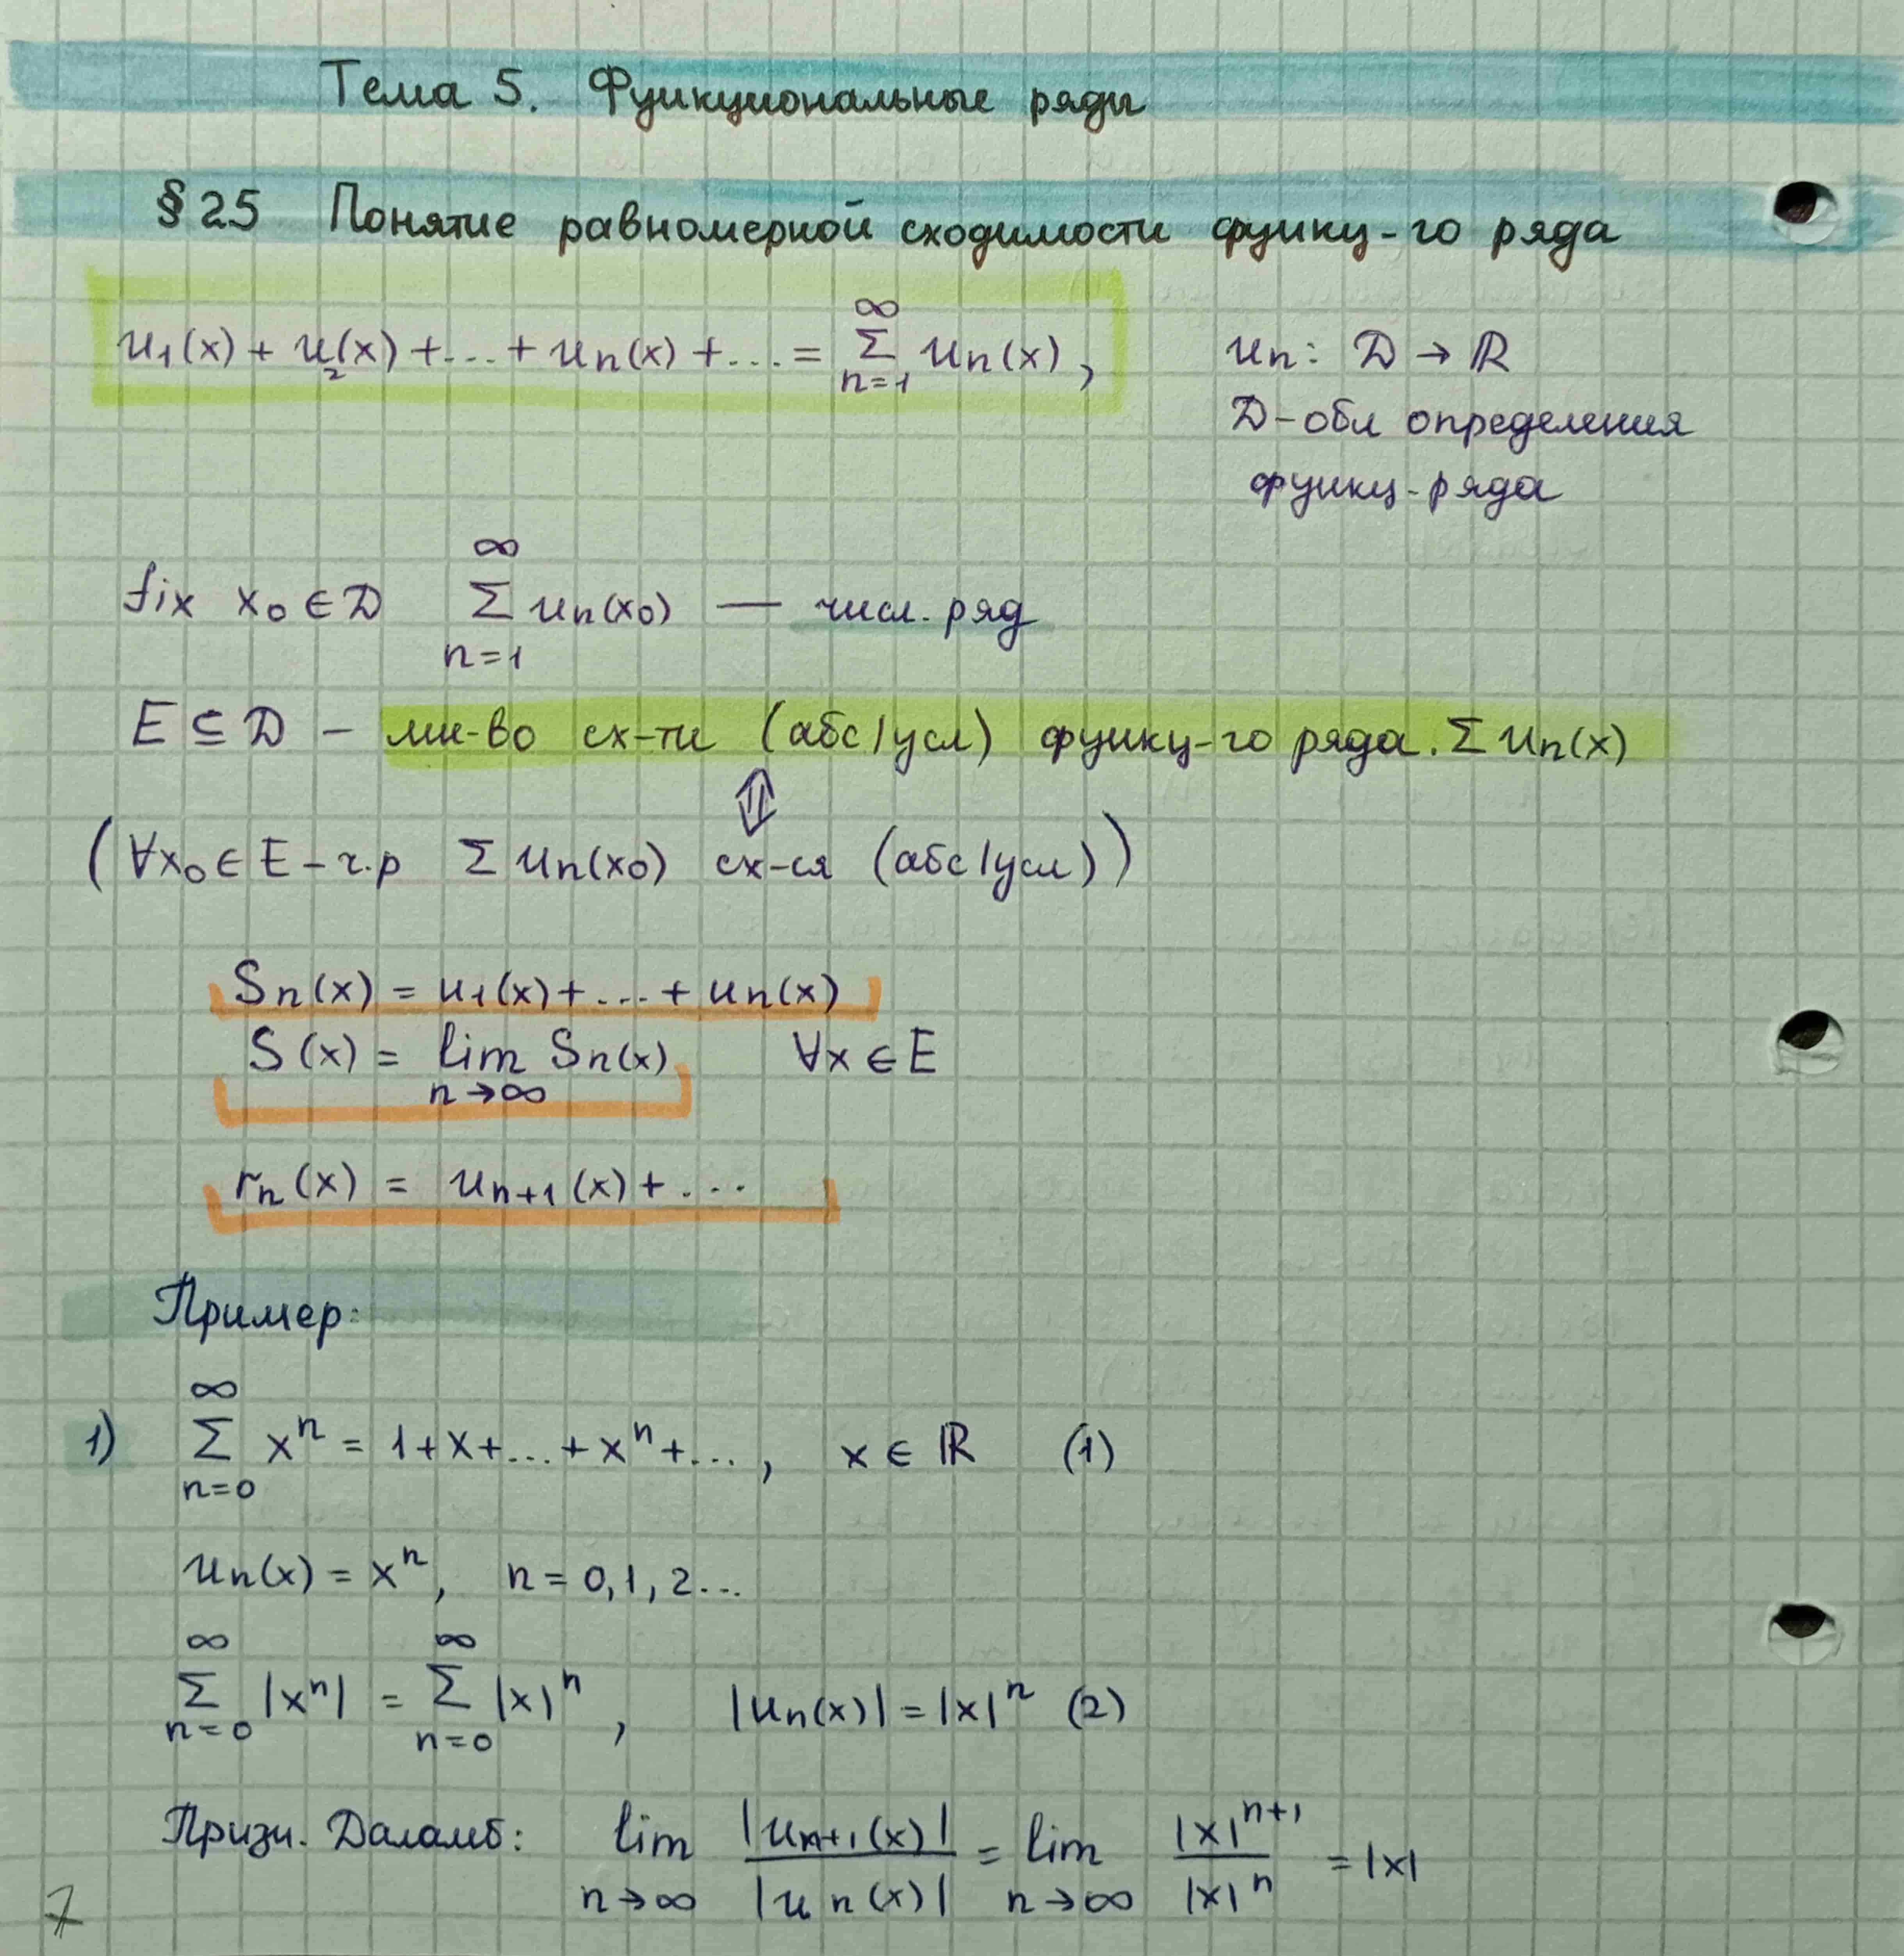 Тема 5. Функциональные ряды
§ 25 Понятие равномерной сходимости функц-го ряда
u₁(x) + u₂(x) + ... + uₙ(x) + ... = ∑_{n=1}^{∞} uₙ(x),
uₙ: D → ℝ
D - обл определения
функц-ряда
fix x₀ ∈ D ∑_{n=1}^{∞} uₙ(x₀) — числ. ряд
E ⊆ D - мн-во сх-ти (абс/усл) функц-го ряда. ∑ uₙ(x)
⇕
(∀x₀ ∈ E - ч.р ∑ uₙ(x₀) сх-ся (абс/усл))
Sₙ(x) = u₁(x) + ... + uₙ(x)
S(x) = lim_{n→∞} Sₙ(x) ∀x ∈ E
rₙ(x) = uₙ₊₁(x) + ...
Пример:
1) ∑_{n=0}^{∞} xⁿ = 1 + x + ... + xⁿ + ..., x ∈ ℝ (1)
uₙ(x) = xⁿ, n = 0, 1, 2...
∑_{n=0}^{∞} |xⁿ| = ∑_{n=0}^{∞} |x|ⁿ, |uₙ(x)| = |x|ⁿ (2)
Призн. Даламб: lim_{n→∞} |uₙ₊₁(x)| / |uₙ(x)| = lim_{n→∞} |x|ⁿ⁺¹ / |x|ⁿ = |x|
7